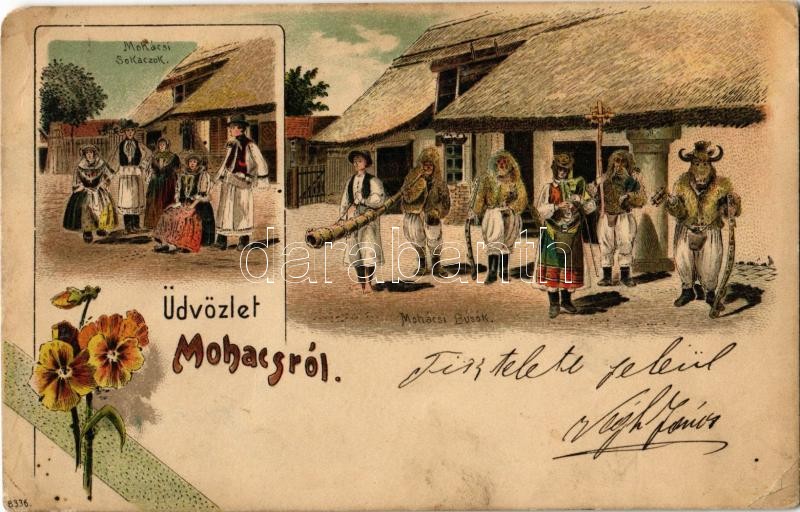 Mohácsi
Sokáczok.
Mohácsi Busók.
darabanth
Üdvözlet
Mohacsról.
Tisztelete jeléül
Végh János
8336.